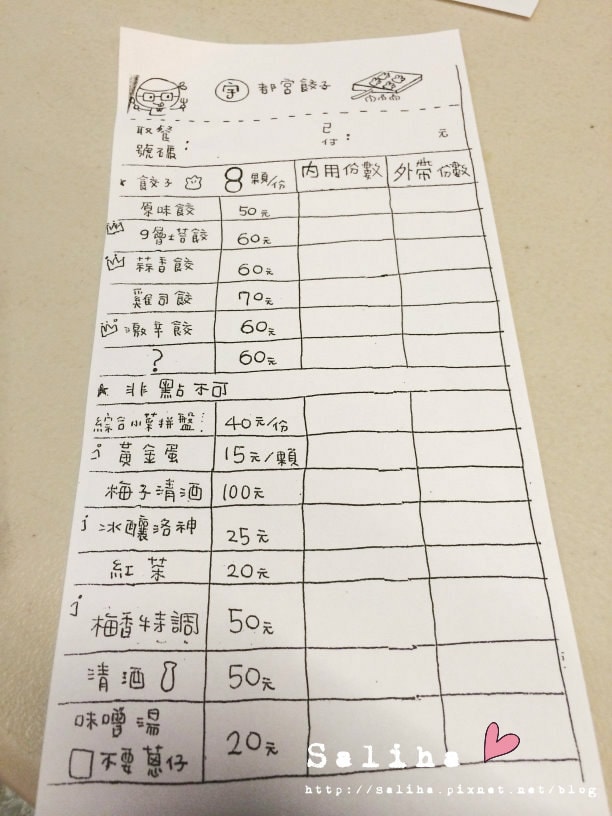 宇 都宮餃子
取餐號碼： 已付： 元
餃子 8顆/份 內用份數 外帶份數
原味餃 50元
9層塔餃 60元
蒜香餃 60元
雞司餃 70元
激辛餃 60元
? 60元
★ 非點不可
綜合小菜拼盤 40元/份
黃金蛋 15元/顆
梅子清酒 100元
冰釀洛神 25元
紅茶 20元
梅香特調 50元
清酒 50元
味噌湯 20元
□不要蔥仔
Saliha
http://saliha.pixnet.net/blog